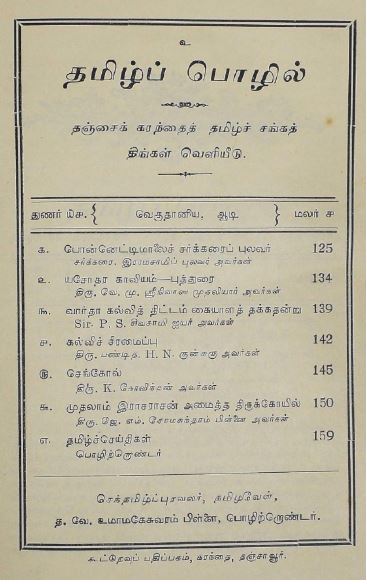 உ
தமிழ்ப் பொழில்
தஞ்சைக் கரந்தைத் தமிழ்ச் சங்கத்
திங்கள் வெளியீடு.
துணர் ௰௪. { வெகுதானிய, ஆடி } மலர் ௪
௧. பொன்னெட்டிமாலைச் சர்க்கரைப் புலவர் 125
சர்க்கரை. இராமசாமிப் புலவர் அவர்கள்
௨. யசோதர காவியம்—புத்துரை 134
திரு. வே. மு. ஸ்ரீநிவாஸ முதலியார் அவர்கள்
௩. வார்தா கல்வித் திட்டம் கையாளத் தக்கதன்று 139
Sir. P. S. சிவசாமி ஐயர் அவர்கள்
௪. கல்விச் சீரமைப்பு 142
திரு. பண்டித. H. N. குன்சுரு அவர்கள்
௫. செங்கோல் 145
திரு. K. கோவிந்தன் அவர்கள்
௬. முதலாம் இராசராசன் அமைத்த திருக்கோயில் 150
திரு. ஜே. எம். சோமசுந்தரம் பிள்ளை அவர்கள்
௭. தமிழ்ச்செய்திகள் 159
பொழிற்றொண்டர்
செந்தமிழ்ப்புரவலர், தமிழவேள்,
த. வே. உமாமகேசுவரம் பிள்ளை, பொழிற்றொண்டர்.
கூட்டுறவுப் பதிப்பகம், கரந்தை, தஞ்சாவூர்.